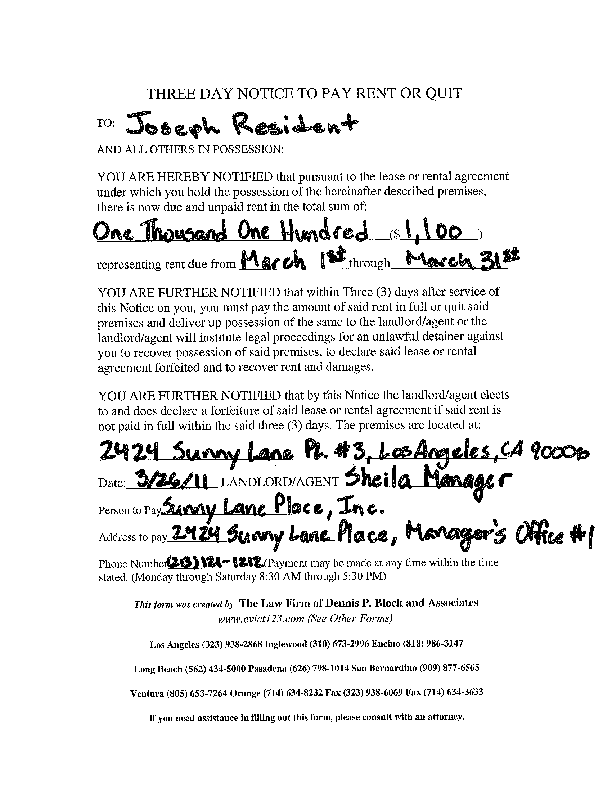 THREE DAY NOTICE TO PAY RENT OR QUIT
TO: Joseph Resident
AND ALL OTHERS IN POSSESSION:
YOU ARE HEREBY NOTIFIED that pursuant to the lease or rental agreement
under which you hold the possession of the hereinafter described premises,
there is now due and unpaid rent in the total sum of:
One Thousand One Hundred ($1,100)
representing rent due from March 1st through March 31st
YOU ARE FURTHER NOTIFIED that within Three (3) days after service of
this Notice on you, you must pay the amount of said rent in full or quit said
premises and deliver up possession of the same to the landlord/agent or the
landlord/agent will institute legal proceedings for an unlawful detainer against
you to recover possession of said premises, to declare said lease or rental
agreement forfeited and to recover rent and damages.
YOU ARE FURTHER NOTIFIED that by this Notice the landlord/agent elects
to and does declare a forfeiture of said lease or rental agreement if said rent is
not paid in full within the said three (3) days. The premises are located at:
2424 Sunny Lane Pl. #3, Los Angeles, CA 90006
Date: 3/26/11 LANDLORD/AGENT Sheila Manager
Person to Pay Sunny Lane Place, Inc.
Address to pay 2424 Sunny Lane Place, Manager's Office #1
Phone Number (213) 121-1212 Payment may be made at any time within the time
stated. (Monday through Saturday 8:30 AM through 5:30 PM)
This form was created by The Law Firm of Dennis P. Block and Associates
www.evict123.com (See Other Forms)
Los Angeles (323) 938-2868 Inglewood (310) 673-2996 Encino (818) 986-3147
Long Beach (562) 434-5000 Pasadena (626) 798-1014 San Bernardino (909) 877-6565
Ventura (805) 653-7264 Orange (714) 634-8232 Fax (323) 938-6069 Fax (714) 634-3633
If you need assistance in filling out this form, please consult with an attorney.